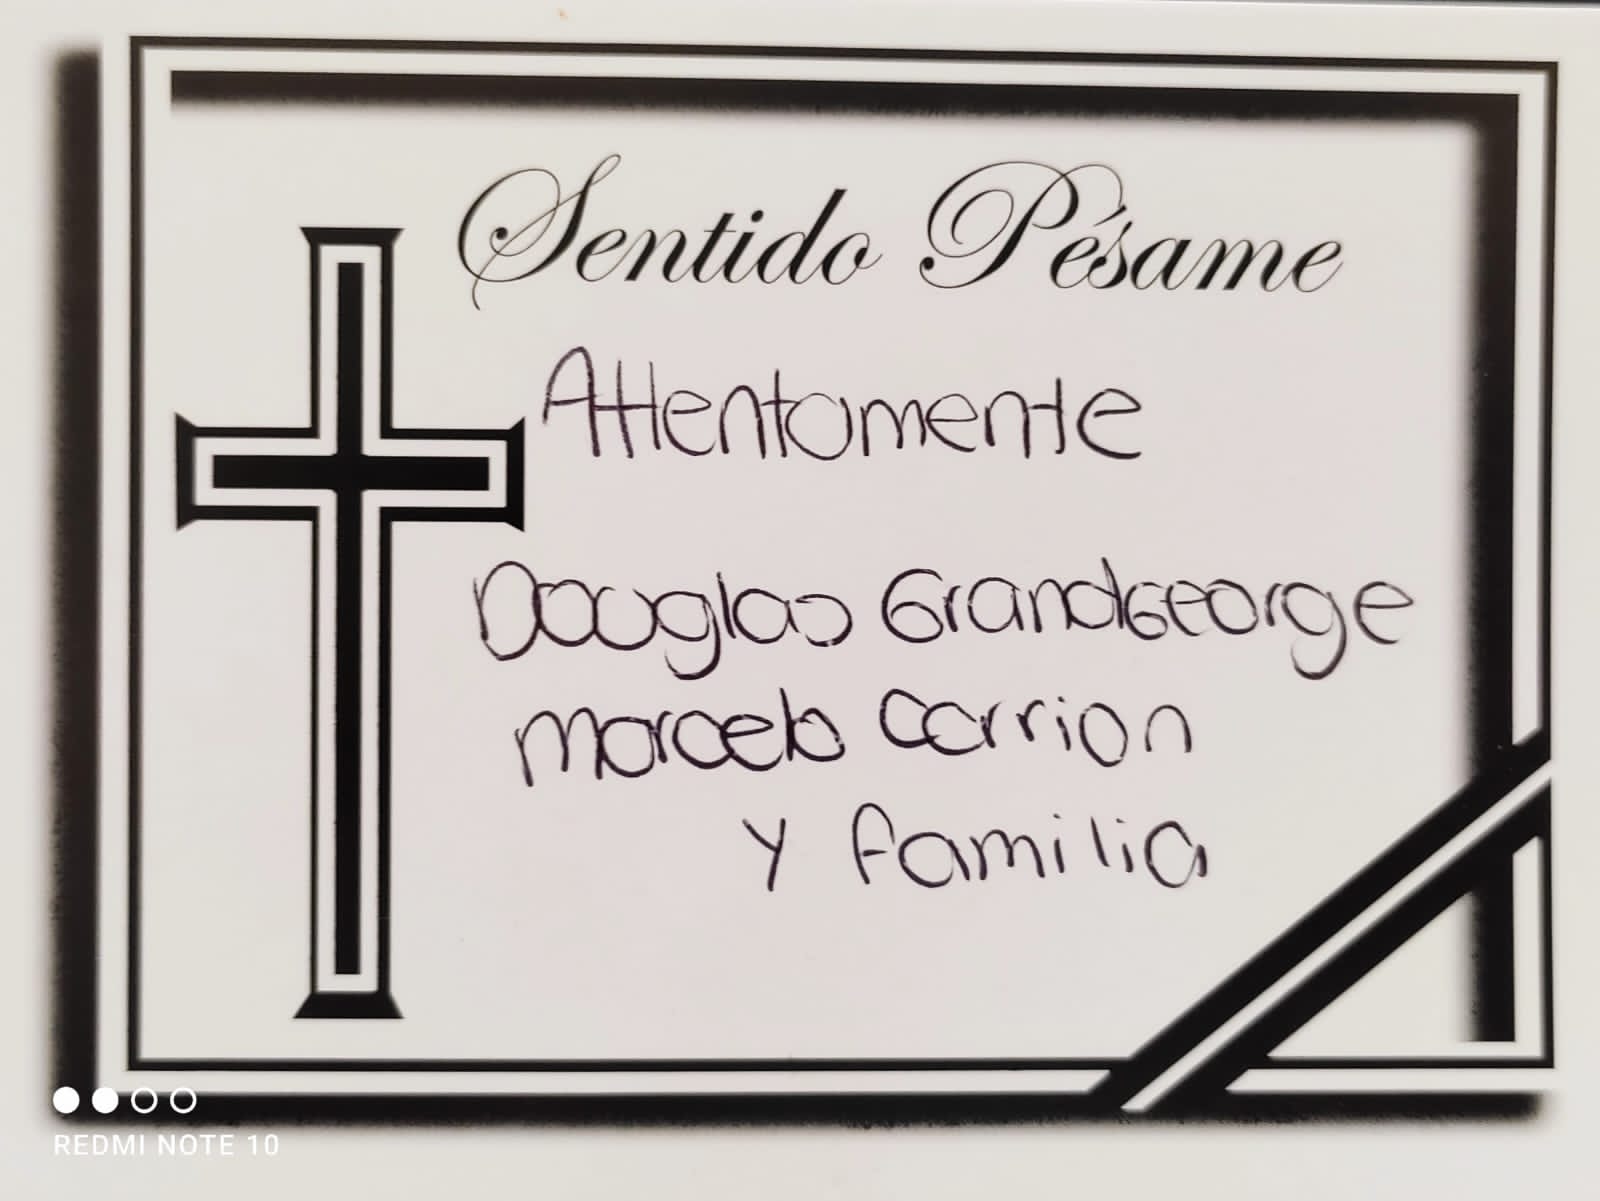 Sentido Pésame
Attentamente
Douglas Grandgeorge
Marcelo Carrion
y familia
REDMI NOTE 10